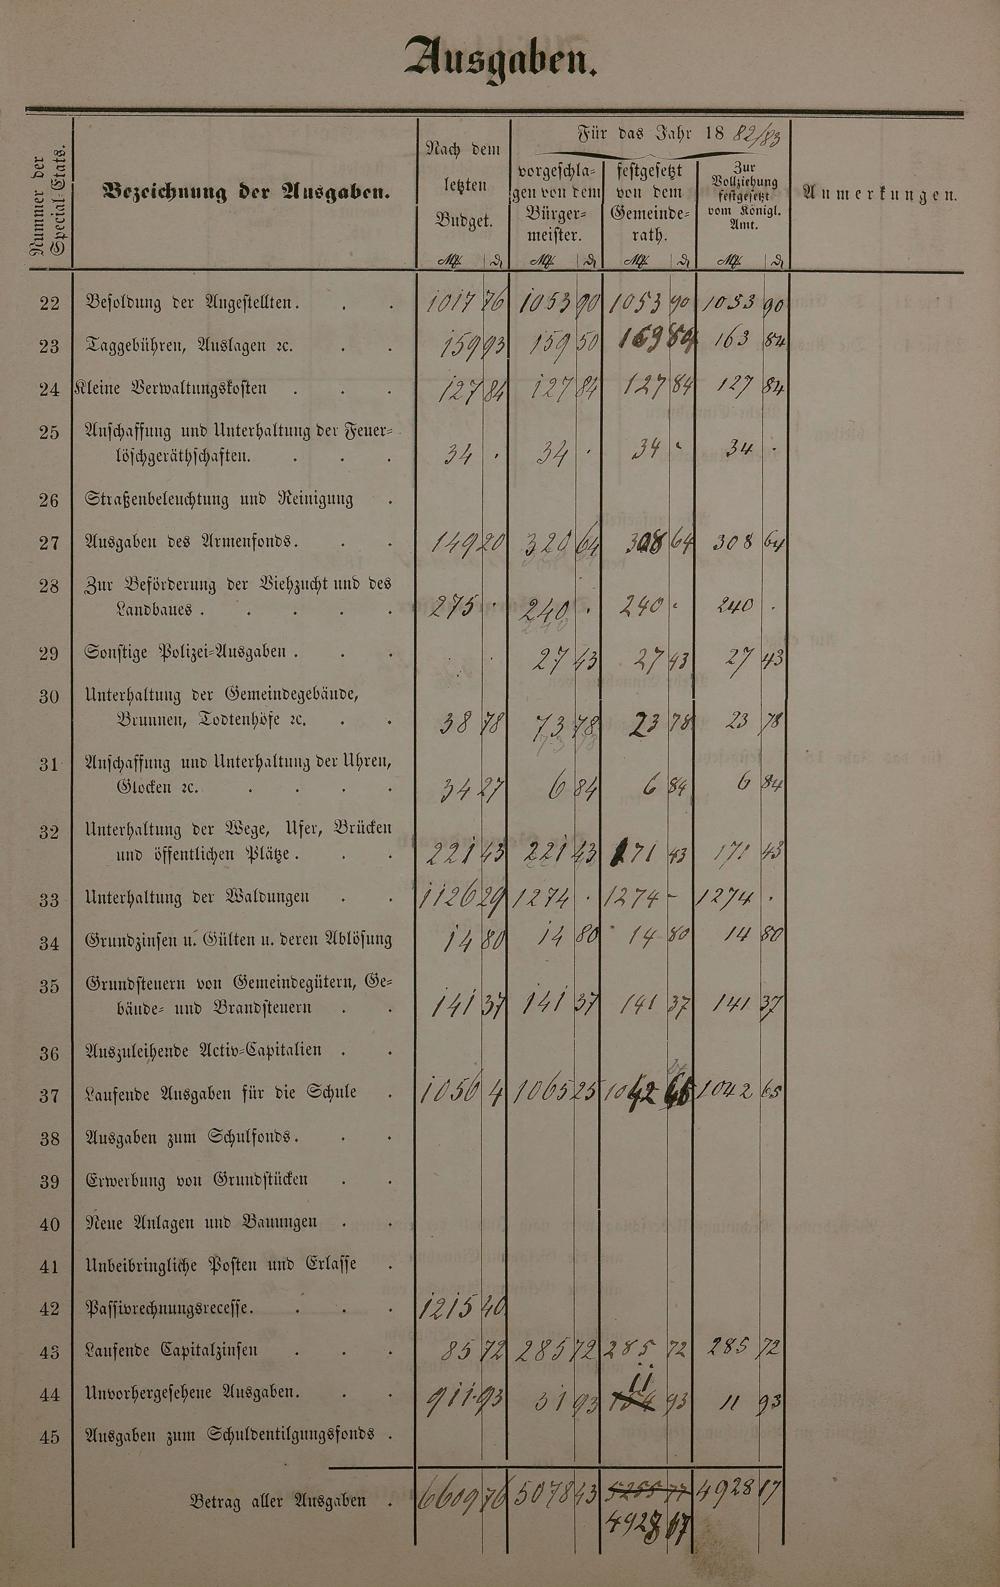 Ausgaben.
Nummer der Special-Etats.
Bezeichnung der Ausgaben.
Nach dem letzten Budget.
Für das Jahr 1882/83
vorgeschlagen von dem Bürgermeister.
festgesetzt von dem Gemeinderath.
Zur Vollziehung festgesetzt vom Königl. Amt.
Anmerkungen.
22 Besoldung der Angestellten. 1017 76 1053 90 1053 90 1053 90
23 Taggebühren, Auslagen ꝛc. 159 93 159 50 163 84 163 84
24 Kleine Verwaltungskosten 127 84 127 84 127 84 127 84
25 Anschaffung und Unterhaltung der Feuer-
löschgeräthschaften. 34 . 34 . 34 - 34 .
26 Straßenbeleuchtung und Reinigung
27 Ausgaben des Armenfonds. 149 20 320 64 308 64 308 64
28 Zur Beförderung der Viehzucht und des
Landbaues. 275 . 240 . 240 . 240 .
29 Sonstige Polizei-Ausgaben. . . 27 43 27 43 27 43
30 Unterhaltung der Gemeindegebäude,
Brunnen, Todtenhöfe ꝛc. 38 78 73 78 23 78 23 78
31 Anschaffung und Unterhaltung der Uhren,
Glocken ꝛc. 34 27 6 84 6 84 6 84
32 Unterhaltung der Wege, Ufer, Brücken
und öffentlichen Plätze. 221 43 221 43 171 43 171 43
33 Unterhaltung der Waldungen 1126 29 1274 . 1274 - 1274 .
34 Grundzinsen u. Gülten u. deren Ablösung 14 80 14 80 14 80 14 80
35 Grundsteuern von Gemeindegütern, Ge-
bäude- und Brandsteuern 141 37 141 37 141 37 141 37
36 Auszuleihende Activ-Capitalien
37 Laufende Ausgaben für die Schule 1056 4 1065 25 1042 65 1042 65
38 Ausgaben zum Schulfonds.
39 Erwerbung von Grundstücken
40 Neue Anlagen und Bauungen
41 Unbeibringliche Posten und Erlasse
42 Passivrechnungsrecesse. 1215 40
43 Laufende Capitalzinsen 85 72 285 72 285 72 285 72
11
44 Unvorhergesehene Ausgaben. 911 93 51 93 93 11 93
45 Ausgaben zum Schuldentilgungsfonds.
Betrag aller Ausgaben. 6609 76 5078 43 77 4928 17
4928 17